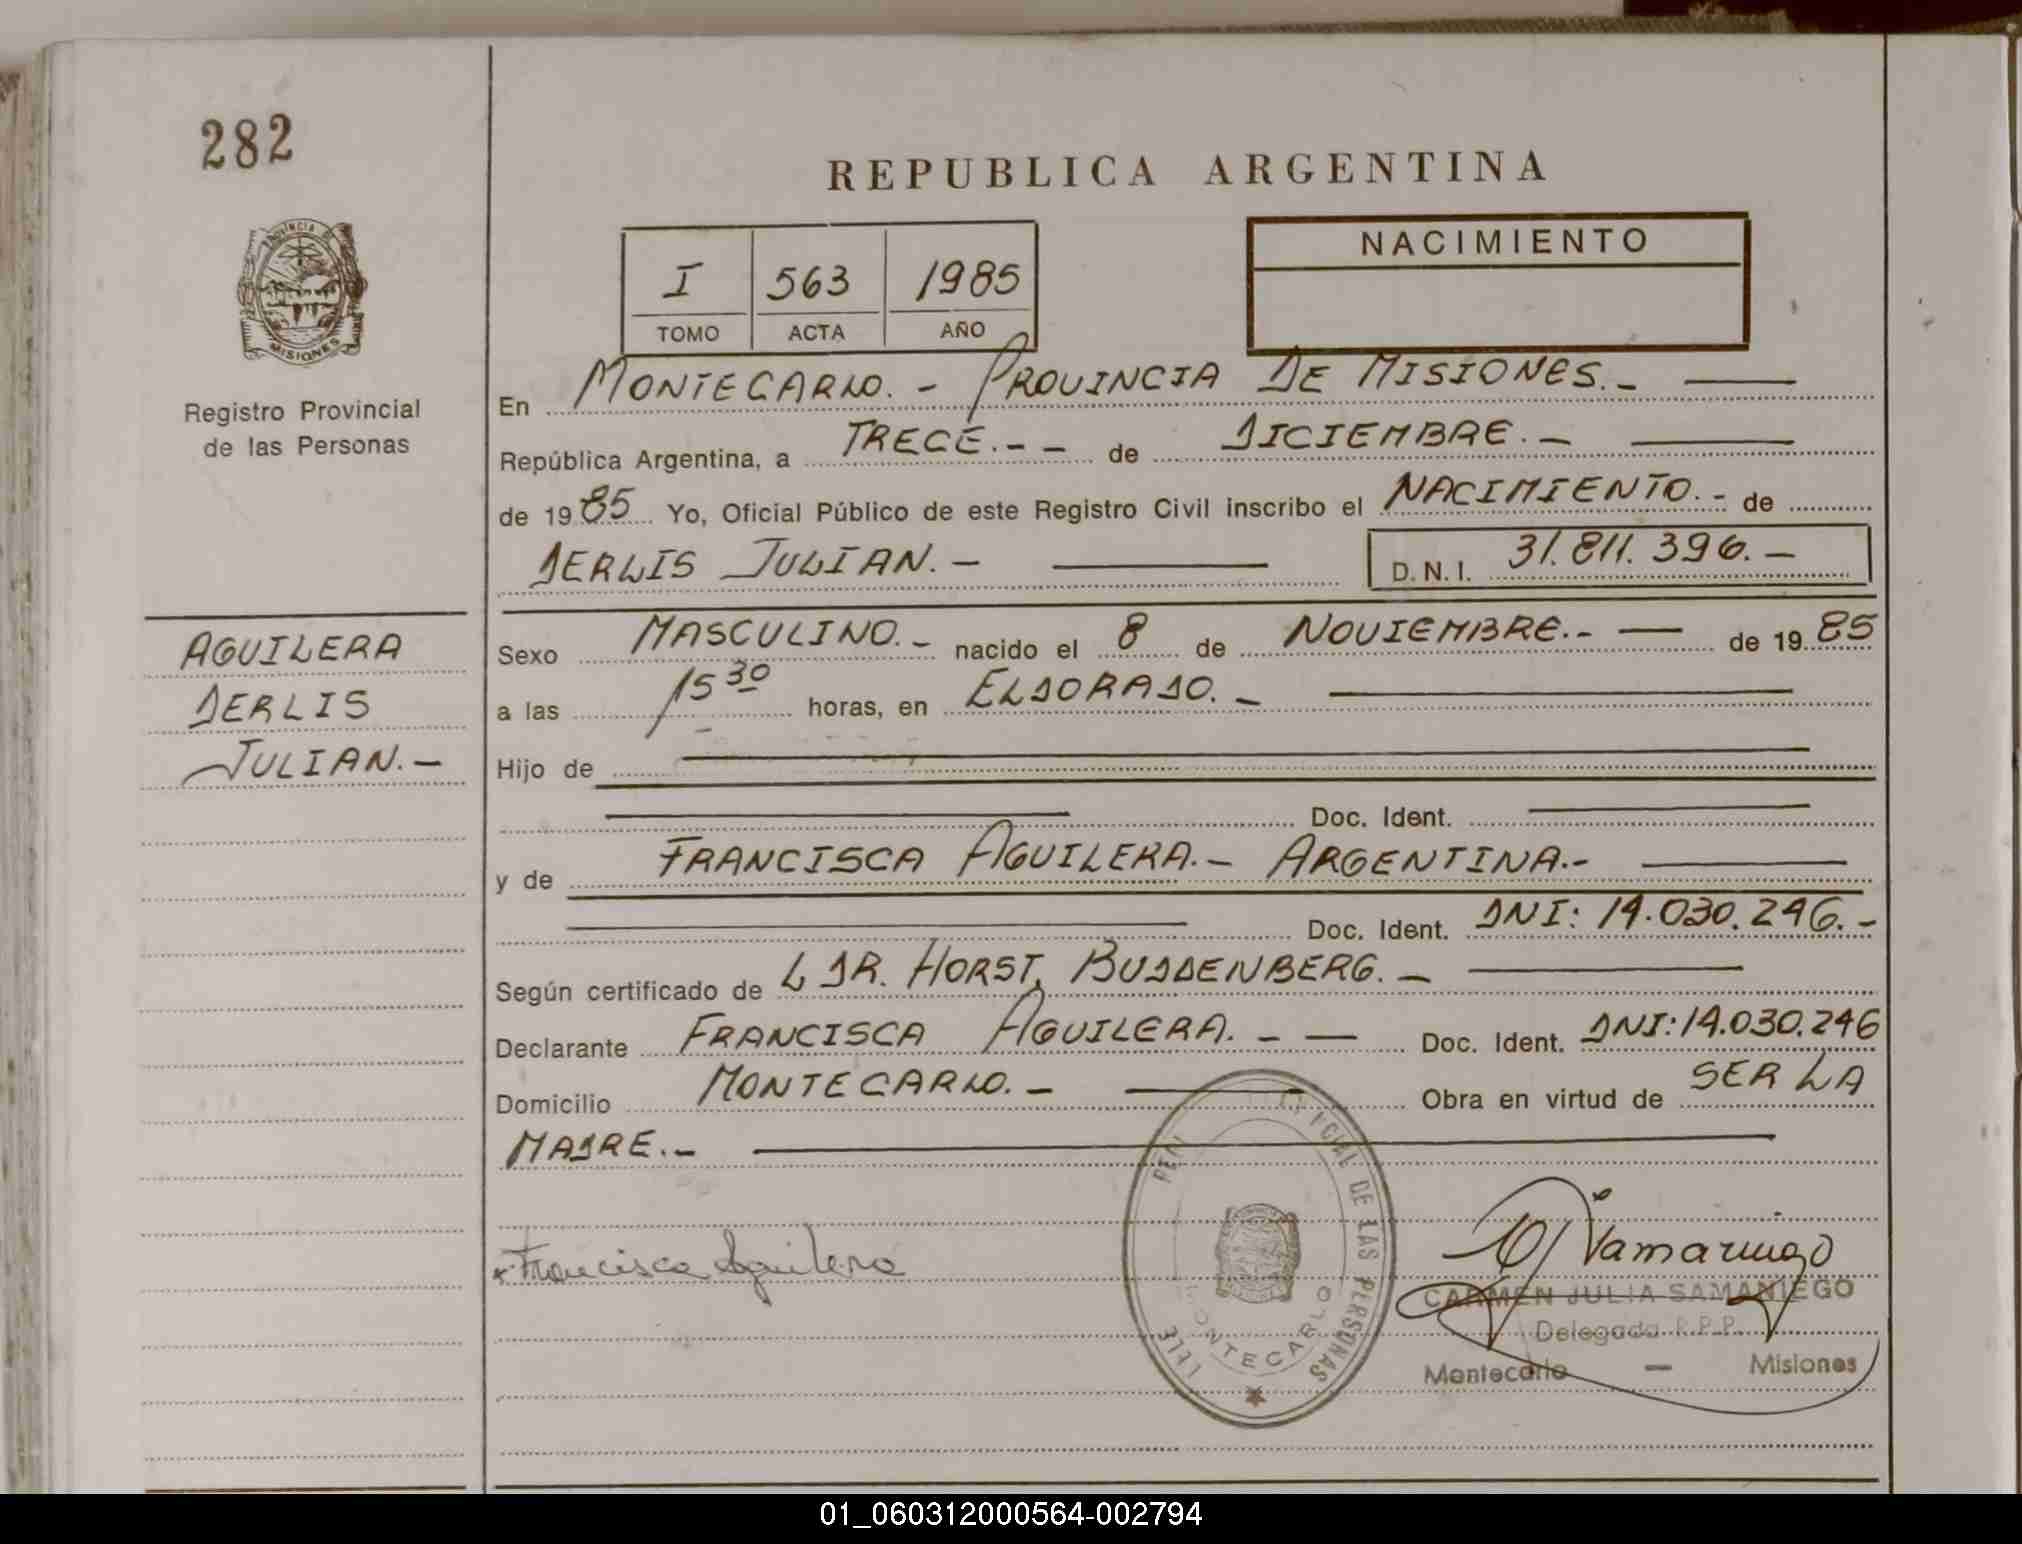 282
REPUBLICA ARGENTINA
PROVINCIA DE
MISIONES
Registro Provincial
de las Personas
I 563 1985
TOMO ACTA AÑO
NACIMIENTO
En MONTECARLO.- PROVINCIA DE MISIONES.-
República Argentina, a TRECE.-- de DICIEMBRE.-
de 1985 Yo, Oficial Público de este Registro Civil inscribo el NACIMIENTO.- de
DERLIS JULIAN.- D.N.I. 31.811.396.-
AGUILERA
DERLIS
JULIAN.-
Sexo MASCULINO.- nacido el 8 de NOVIEMBRE.- de 1985
a las 15 30 horas, en ELDORADO.-
Hijo de
Doc. Ident.
y de FRANCISCA AGUILERA.- ARGENTINA.-
Doc. Ident. DNI: 14.030.246.-
Según certificado de L DR. HORST, BUDDENBERG.-
Declarante FRANCISCA AGUILERA.- Doc. Ident. DNI: 14.030.246
Domicilio MONTECARLO.- Obra en virtud de SER LA
MADRE.-
Francisca Aguilera
DE LAS PERSONAS
MONTECARLO
CARMEN JULIA SAMANIEGO
Delegada R.P.P.
Montecarlo - Misiones
01_060312000564-002794